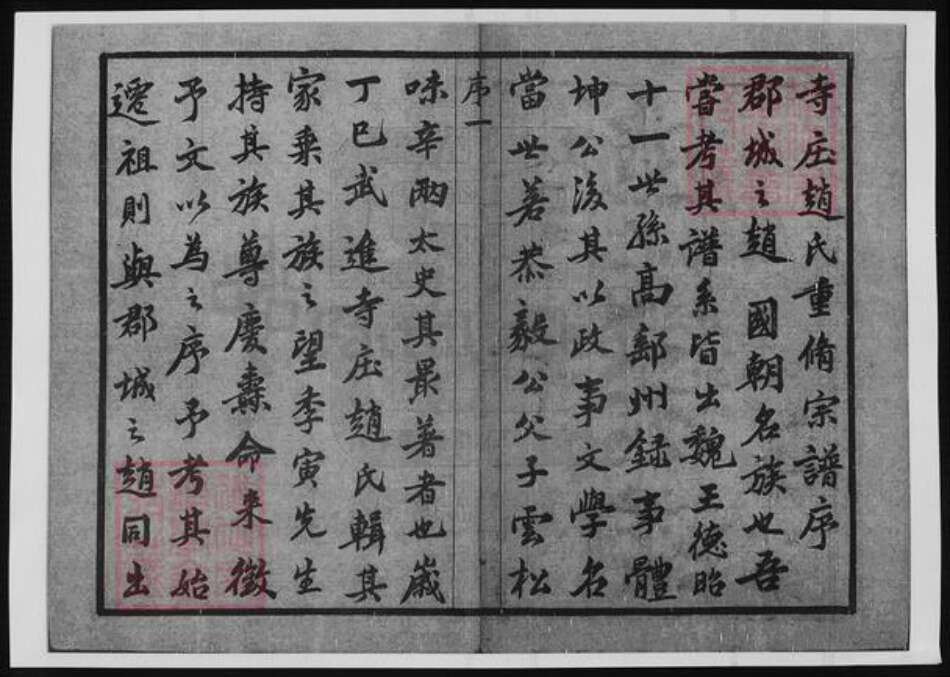 寺庄趙氏重脩宗譜序
郡城之趙 國朝名族也吾
嘗考其譜系皆出魏王德昭
十一世孫高郵州録事體
坤公後其以政事文學名
當世若恭毅公父子雲松
序一
味辛兩太史其最著者也嵗
丁巳武進寺庄趙氏輯其
家乗其族之望季寅先生
持其族尊慶燾命来徵
予文以為之序予考其始
遷祖則與郡城之趙同出